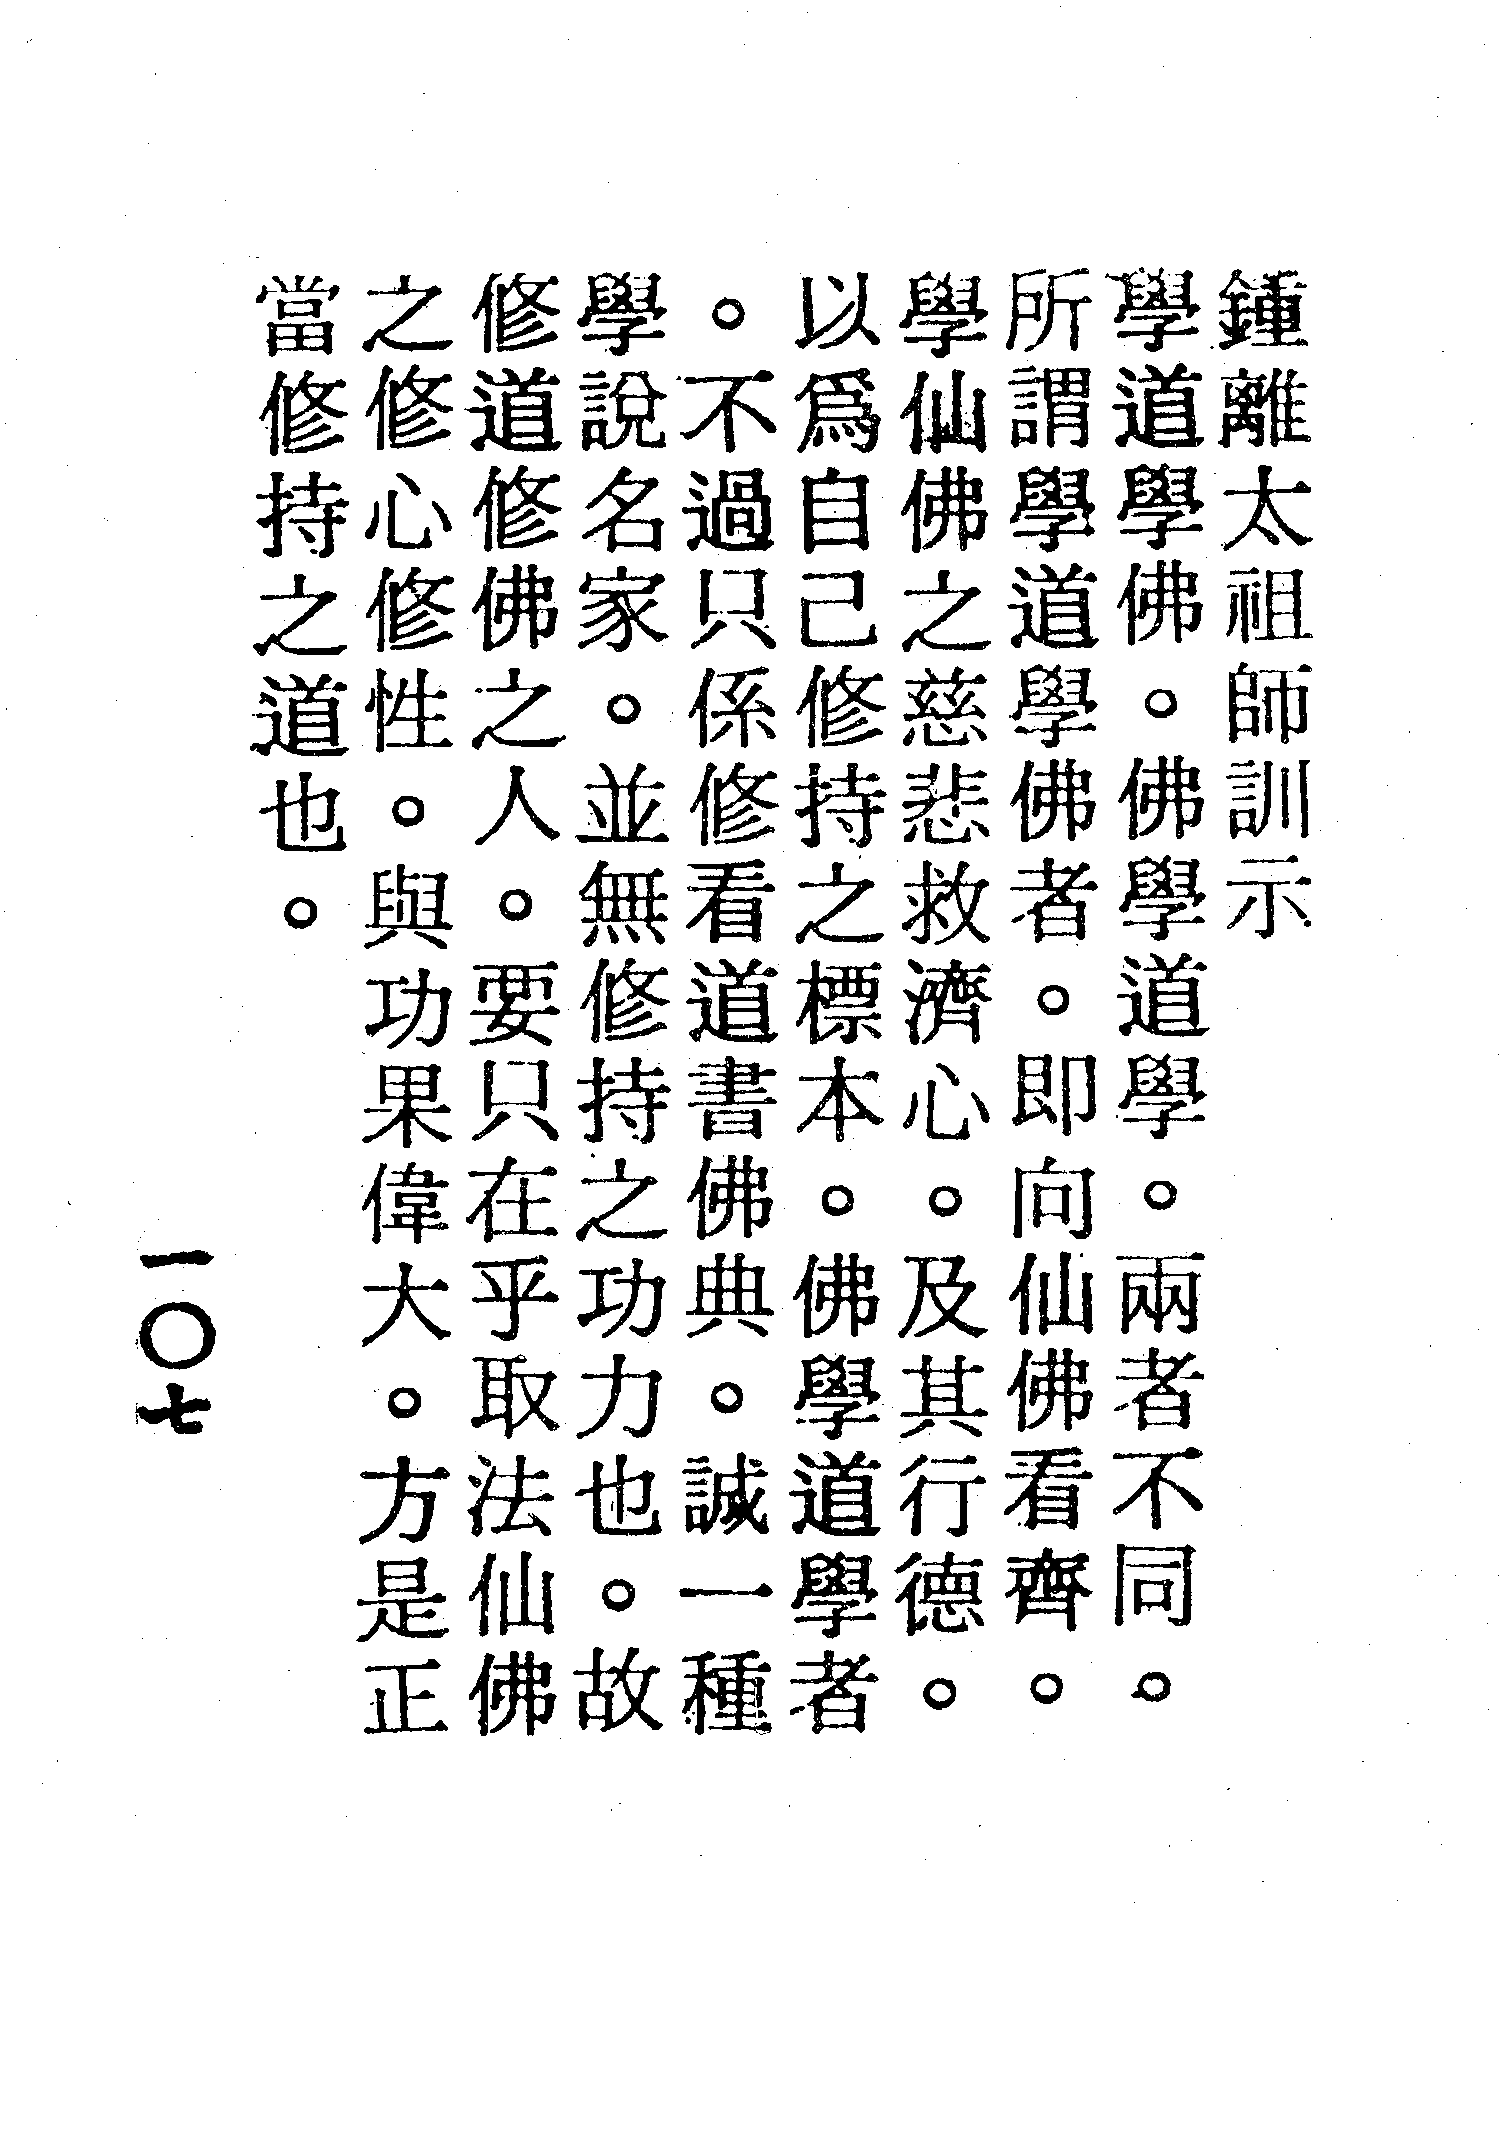 鍾離太祖師訓示
學道學佛。佛學道學。兩者不同。
所謂學道學佛者。即向仙佛看齊。
學仙佛之慈悲救濟心。及其行德。
以爲自己修持之標本。佛學道學者
。不過只係修看道書佛典。誠一種
學說名家。並無修持之功力也。故
修道修佛之人。要只在乎取法仙佛
之修心修性。與功果偉大。方是正
當修持之道也。
一〇七